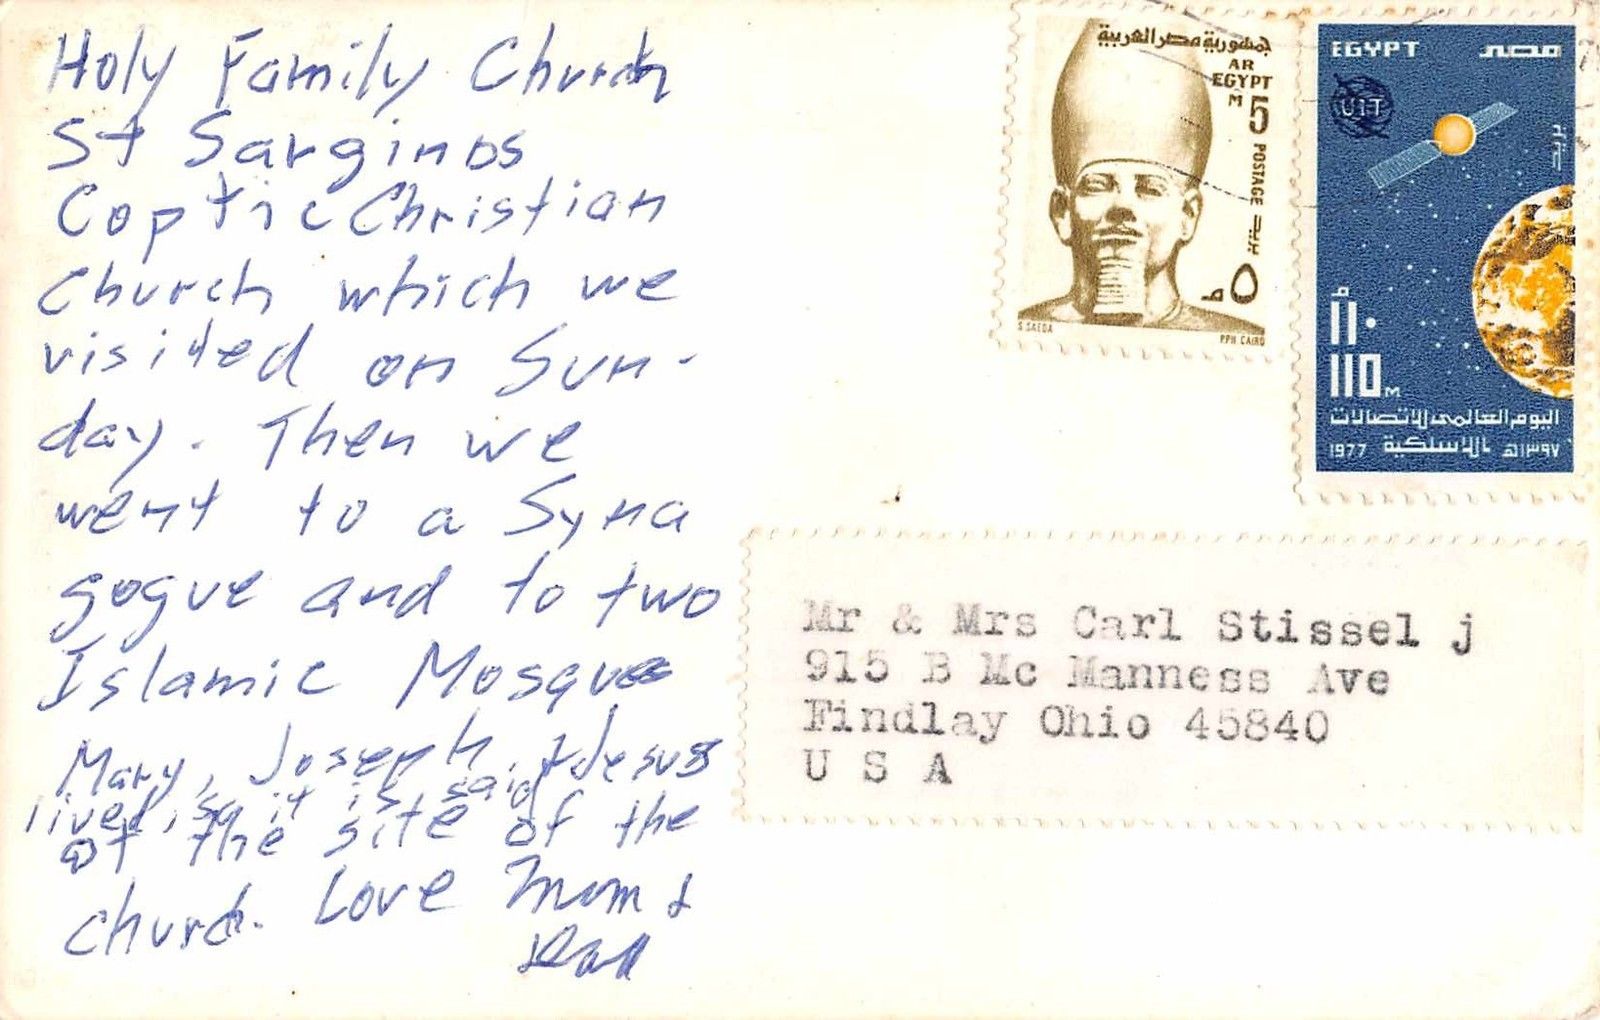 Holy Family Church
St Sarginos
Coptic Christian
Church which we
visited on Sun-
day. Then we
went to a Syna
gogue and to two
Islamic Mosques
Mary, Joseph, & Jesus
lived, so it is said
at the site of the
church. Love Mom &
Dad
جمهورية مصر العربية
AR
EGYPT
M 5
POSTAGE بريد
م ٥
S.SAEDA
PPH CAIRO
EGYPT مصر
UIT
بريد
م ١١٠
110 M
اليوم العالمى للاتصالات
1977 باللاسلكية ١٣٩٧هـ
Mr & Mrs Carl Stissel j
915 B Mc Manness Ave
Findlay Ohio 45840
U S A